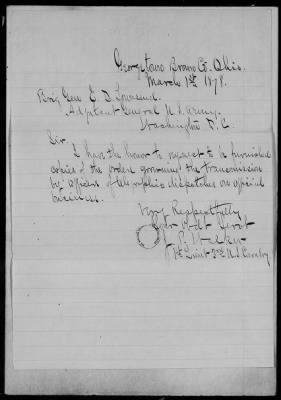 Georgetown Brown Co. Ohio.
March 1st 1878.
Brig Gen E. D. Townsend.
Adjutant General U.S. Army.
Washington D.C.
Sir
I have the honor to request to be furnished
copies of the orders governing the transmission
by officers of telegraphic dispatches on official
business.
Very Respectfully
Your Obdt Servt
J. P. Walker
1st Lieut 3rd U.S. Cavalry